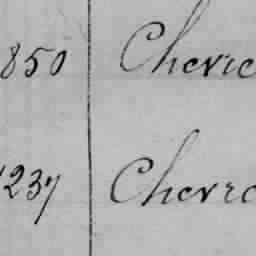 850 Chevre
1237 Chevre